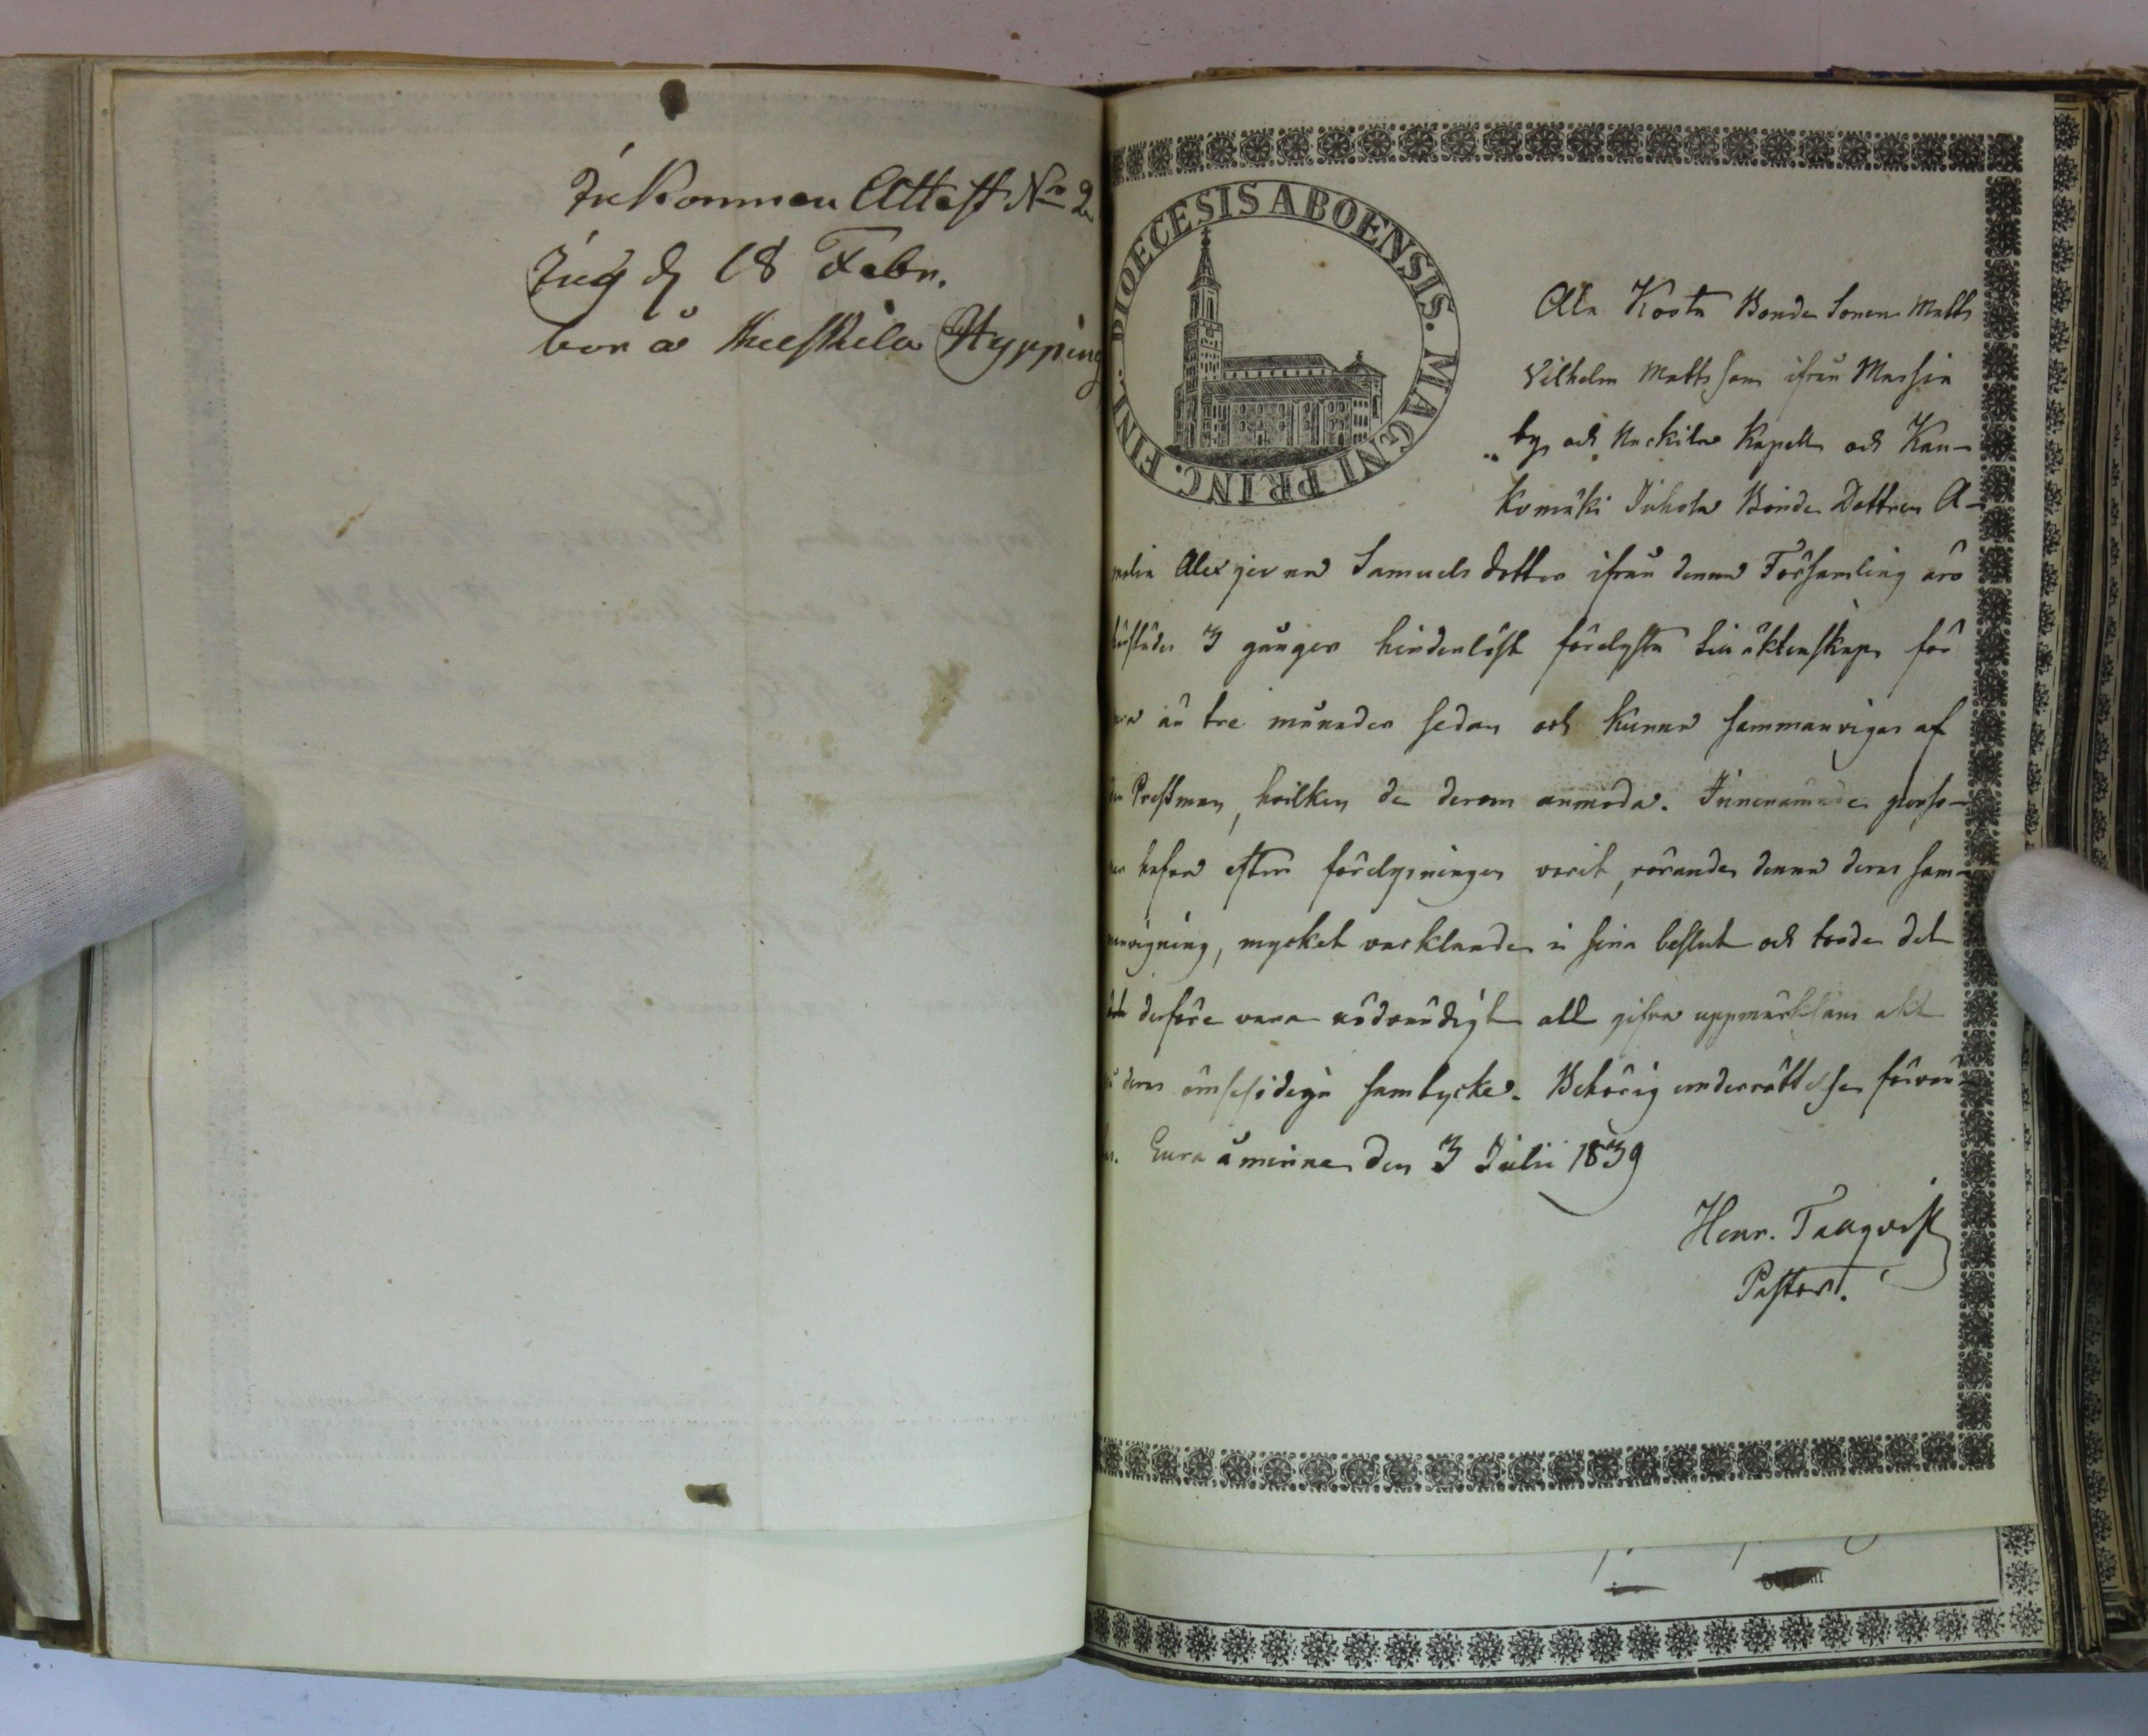 Inkommen Attest No 2
Ing d 18 Febr.
bor å Hypping
DIOECESIS ABOENSIS. MAGNI PRINC. FINL.
Ala Koota Bonde Sonen Matts
Vilhelm Mattsson ifrån Massia
by och Kapell och Kau-
komäki Juhola Bonde Dottren A-
Samuels dotter ifrån denna Församling äro
3 gånger hinderlöst förelysta till äktenskap för
än tre månader sedan och kunna sammanvigas af
den Prestman, hvilken de derom anmoda. Innenämnde perso-
ner hafva efter förelysningen varit, rörande denna deras sam-
manvigning, mycket vacklande i sina beslut och torde det
derföre vara nödvändigt att gifva uppmärksam akt
på deras ömsesidiga samtycke. Behörig underrättelse förvän-
tas. Eura åminne den 3 Julii 1839
Henr. Tallqvist
Pastor.